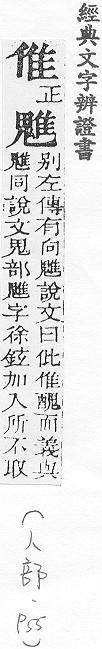 經典文字辨證書
倠正魋
別左傳有向魋說文曰此倠醜而義與
魋同說文鬼部魋字徐鉉加入所不取
（人部．P55）